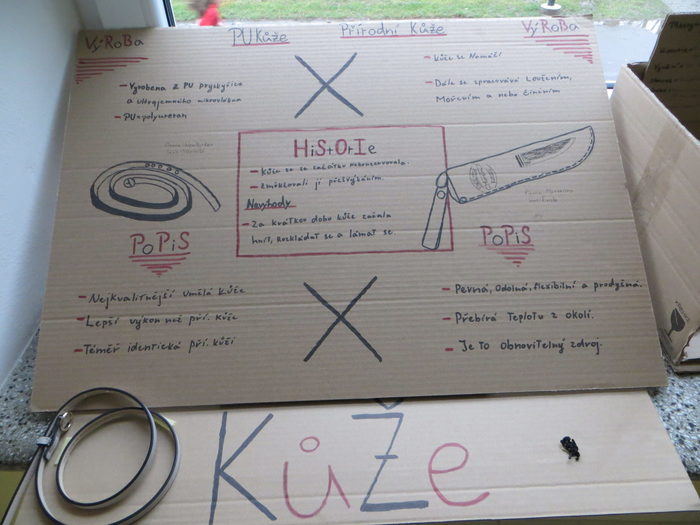 VýRoBa
PU Kůže
Přírodní Kůže
VýRoBa
- Vyrobena z PU pryskyřice
a ultrajemného mikrovlákna
- PU = polyuretan
- Kůže se Namáčí
- Dále se zpracovává Loučením,
Mořením a nebo činěním
HiStOrIe
- Kůže se ze začátku nekonzervovala.
- Změkčovali ji přežvýkáním.
Nevýhody
- Za krátkou dobu kůže začala
hnít, rozkládat se a lámat se.
PoPiS
PoPiS
- Nejkvalitnější umělá kůže
- Lepší výkon než pří. kůže
- Téměř identická pří. kůži
- Pevná, Odolná, flexibilní a prodyšná.
- Přebírá Teplotu z okolí.
- Je to Obnovitelný zdroj.
Kůže